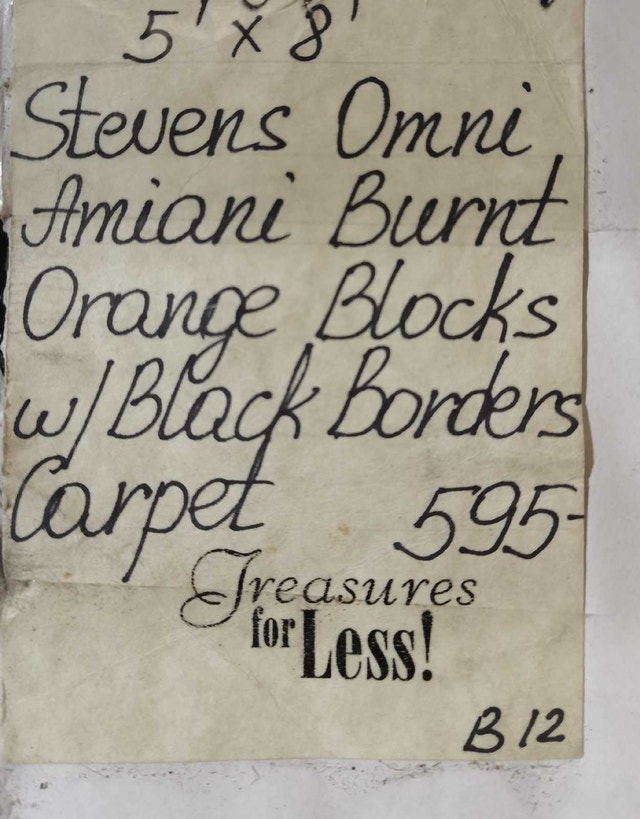 5' x 8'
Stevens Omni
Amiani Burnt
Orange Blocks
w/ Black Borders
Carpet 595-
Treasures
for Less!
B 12